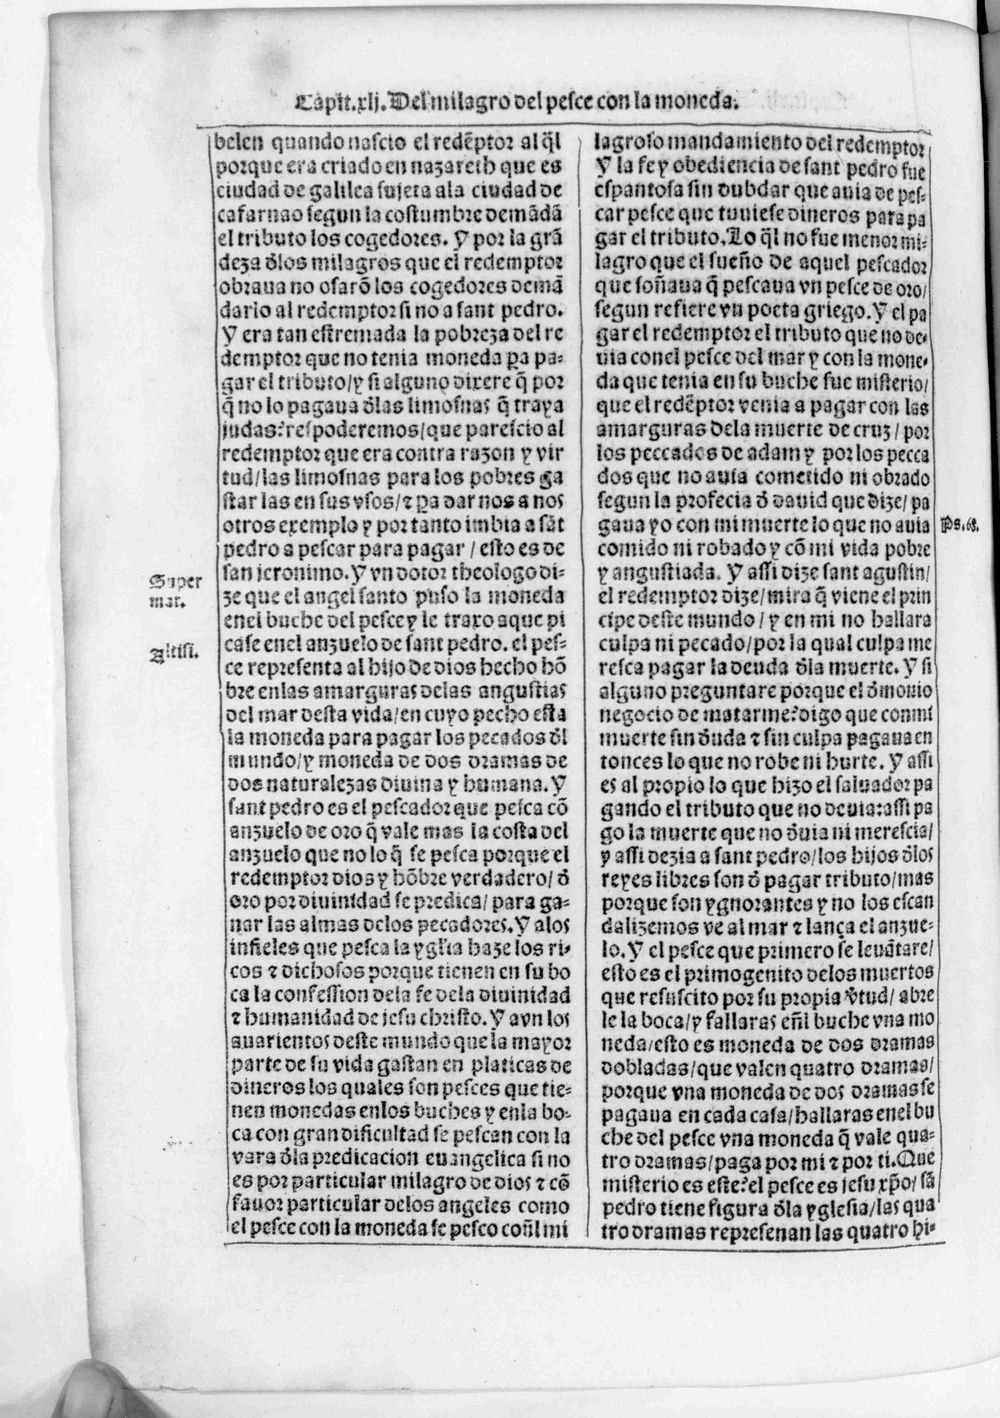 Capit.xlj. Del milagro del pesce con la moneda.
belen quando nascio el redẽptor al q̃l
porque era criado en nazareth que es
ciudad de galilea sujeta ala ciudad de
cafarnao segun la costumbre demãdã
el tributo los cogedores. Y por la grã
deza d̃los milagros que el redemptor
obraua no osarõ los cogedores demã
darlo al redemptor si no a sant pedro.
Y era tan estremada la pobreza del re
demptor que no tenia moneda p̱a pa-
gar el tributo/y si alguno dixere q̃ por
q̃ no lo pagaua d̃las limosnas q̃ traya
judas? respõderemos/que parescio al
redemptor que era contra razon y vir
tud/las limosnas para los pobres ga
star las en sus vsos/⁊ p̱a dar nos a nos
otros exemplo y por tanto imbia a sãt
pedro a pescar para pagar/esto es de
san jeronimo. Y vn dotor theologo di-
ze que el angel santo puso la moneda
enel buche del pesce y le traxo a que pi
case enel anzuelo de sant pedro. el pes-
ce representa al hijo de dios hecho hõ
bre enlas amarguras delas angustias
del mar desta vida/en cuyo pecho esta
la moneda para pagar los pecados d̃l
mundo/y moneda de dos dramas de
dos naturalezas diuina y humana. Y
sant pedro es el pescador que pesca cõ
anzuelo de oro q̃ vale mas la costa del
anzuelo que no lo q̃ se pesca porque el
redemptor dios y hõbre verdadero/d̃
oro por diuinidad se predica/para ga-
nar las almas delos pecadores. Y alos
infieles que pesca la yglia haze los ri-
cos ⁊ dichosos porque tienen en su bo
ca la confession dela fe dela diuinidad
⁊ humanidad de jesu christo. Y avn los
auarientos deste mundo que la mayor
parte de su vida gastan en platicas de
dineros los quales son pesces que tie-
nen monedas enlos buches y enla bo-
ca con gran dificultad se pescan con la
vara d̃la predicacion euangelica si no
es por particular milagro de dios ⁊ cõ
fauor particular delos angeles como
el pesce con la moneda se pesco coñl mi
Super
mar.
Altisi.
lagroso mandamiento del redemptor
Y la fe y obediencia de sant pedro fue
espantosa sin dubdar que auia de pes-
car pesce que tuuiese dineros para pa
gar el tributo. Lo q̃l no fue menor mi-
lagro que el sueño de aquel pescador
que soñaua q̃ pescaua vn pesce de oro/
segun refiere vn poeta griego. Y el pa
gar el redemptor el tributo que no de-
uia conel pesce del mar y con la mone-
da que tenia en su buche fue misterio/
que el redẽptor venia a pagar con las
amarguras dela muerte de cruz/por
los peccados de adam y por los pecca
dos que no auia cometido ni obrado
segun la profecia d̃ dauid que dize/pa
gaua yo con mi muerte lo que no auia
comido ni robado y cõ mi vida pobre
y angustiada. Y assi dize sant agustin/
el redemptor dize/mira q̃ viene el prin
cipe deste mundo/y en mi no hallara
culpa ni pecado/por la qual culpa me
resca pagar la deuda d̃la muerte. Y si
alguno preguntare porque el d̃monio
negocio de matarme? digo que con mi
muerte sin d̃uda ⁊ sin culpa pagaua en
tonces lo que no robe ni hurte. Y assi
es al propio lo que hizo el saluador pa
gando el tributo que no deuia: assi pa
go la muerte que no d̃uia ni merescia/
y assi dezia a sant pedro/los hijos d̃los
reyes libres son d̃ pagar tributo/mas
porque son ygnorantes y no los escan
dalizemos ve al mar ⁊ lança el anzue-
lo. Y el pesce que primero se leuãtare/
esto es el primogenito delos muertos
que resuscito por su propia v̓tud/abre
le la boca/y fallaras eñl buche vna mo
neda/esto es moneda de dos dramas
dobladas/que valen quatro dramas/
porque vna moneda de dos dramas se
pagaua en cada casa/hallaras enel bu
che del pesce vna moneda q̃ vale qua-
tro dramas/paga por mi ⁊ por ti. Que
misterio es este? el pesce es jesu xp̃o/sã
pedro tiene figura d̃la yglesia/las qua
tro dramas represenan las quatro hi-
Ps.68.